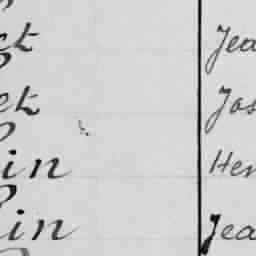 ct Jea
et Jos
in Hen
in Jea